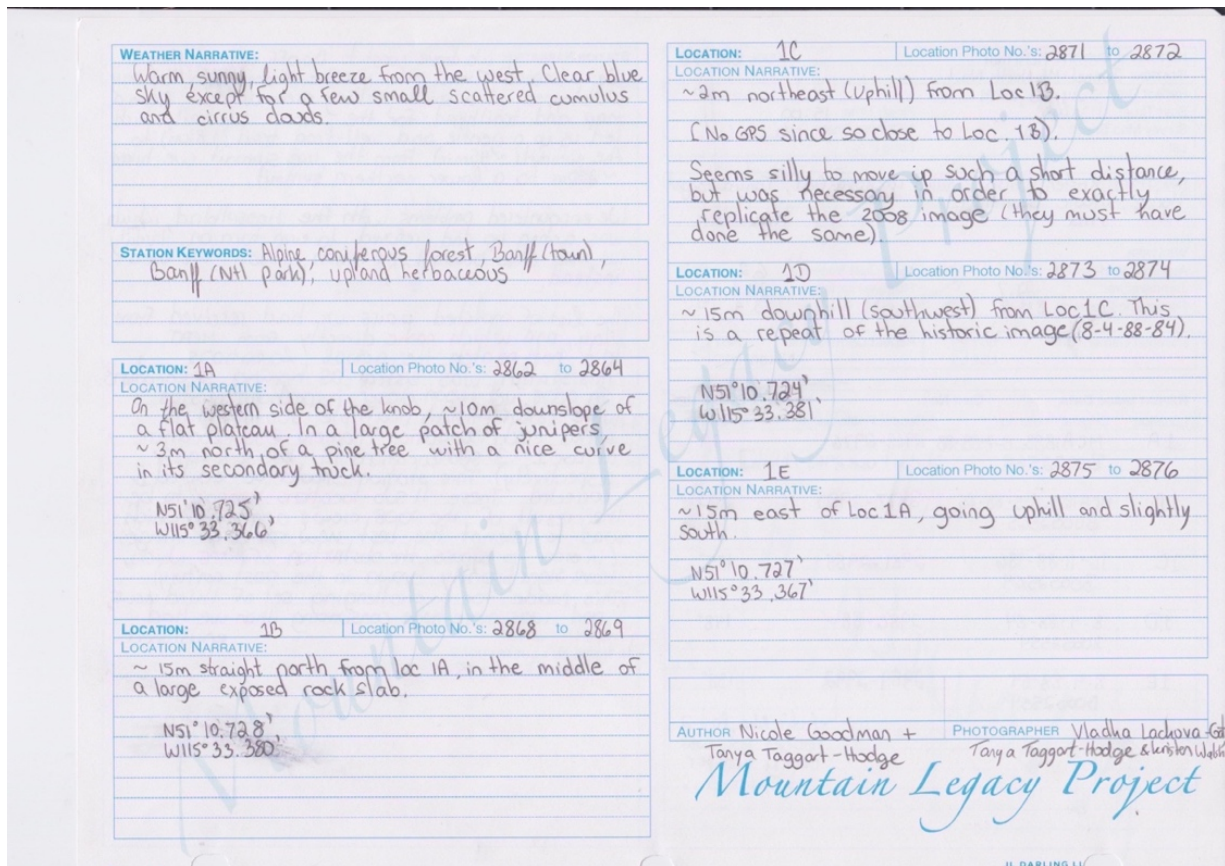 WEATHER NARRATIVE:
Warm sunny, light breeze from the west. Clear blue
sky except for a few small scattered cumulus
and cirrus clouds.
STATION KEYWORDS: Alpine, coniferous forest, Banff (town),
Banff (Ntl park), upland herbaceous
LOCATION: 1A Location Photo No.'s: 2862 to 2864
LOCATION NARRATIVE:
On the western side of the knob, ~10m downslope of
a flat plateau. In a large patch of junipers,
~3m north of a pine tree with a nice curve
in its secondary truck.
N51°10.725'
W115°33.366'
LOCATION: 1B Location Photo No.'s: 2868 to 2869
LOCATION NARRATIVE:
~ 15m straight north from loc 1A, in the middle of
a large exposed rock slab.
N51°10.728'
W115°33.380'
LOCATION: 1C Location Photo No.'s: 2871 to 2872
LOCATION NARRATIVE:
~2m northeast (uphill) from Loc 1B.
(No GPS since so close to Loc. 1B).
Seems silly to move ip such a short distance,
but was necessary in order to exactly
replicate the 2008 image (they must have
done the same).
LOCATION: 1D Location Photo No.'s: 2873 to 2874
LOCATION NARRATIVE:
~15m downhill (southwest) from Loc 1C. This
is a repeat of the historic image (8-4-88-84).
N51°10.724'
W115°33.381'
LOCATION: 1E Location Photo No.'s: 2875 to 2876
LOCATION NARRATIVE:
~15m east of Loc 1A, going uphill and slightly
south.
N51°10.727'
W115°33.367'
AUTHOR Nicole Goodman +
Tanya Taggart-Hodge
PHOTOGRAPHER Vladha
Tanya Taggart-Hodge &
Mountain Legacy Project
Mountain Legacy Project